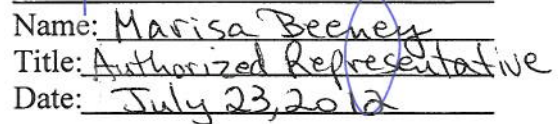 Name: Marisa Beeney
Title: Authorized Representative
Date: July 23, 2012